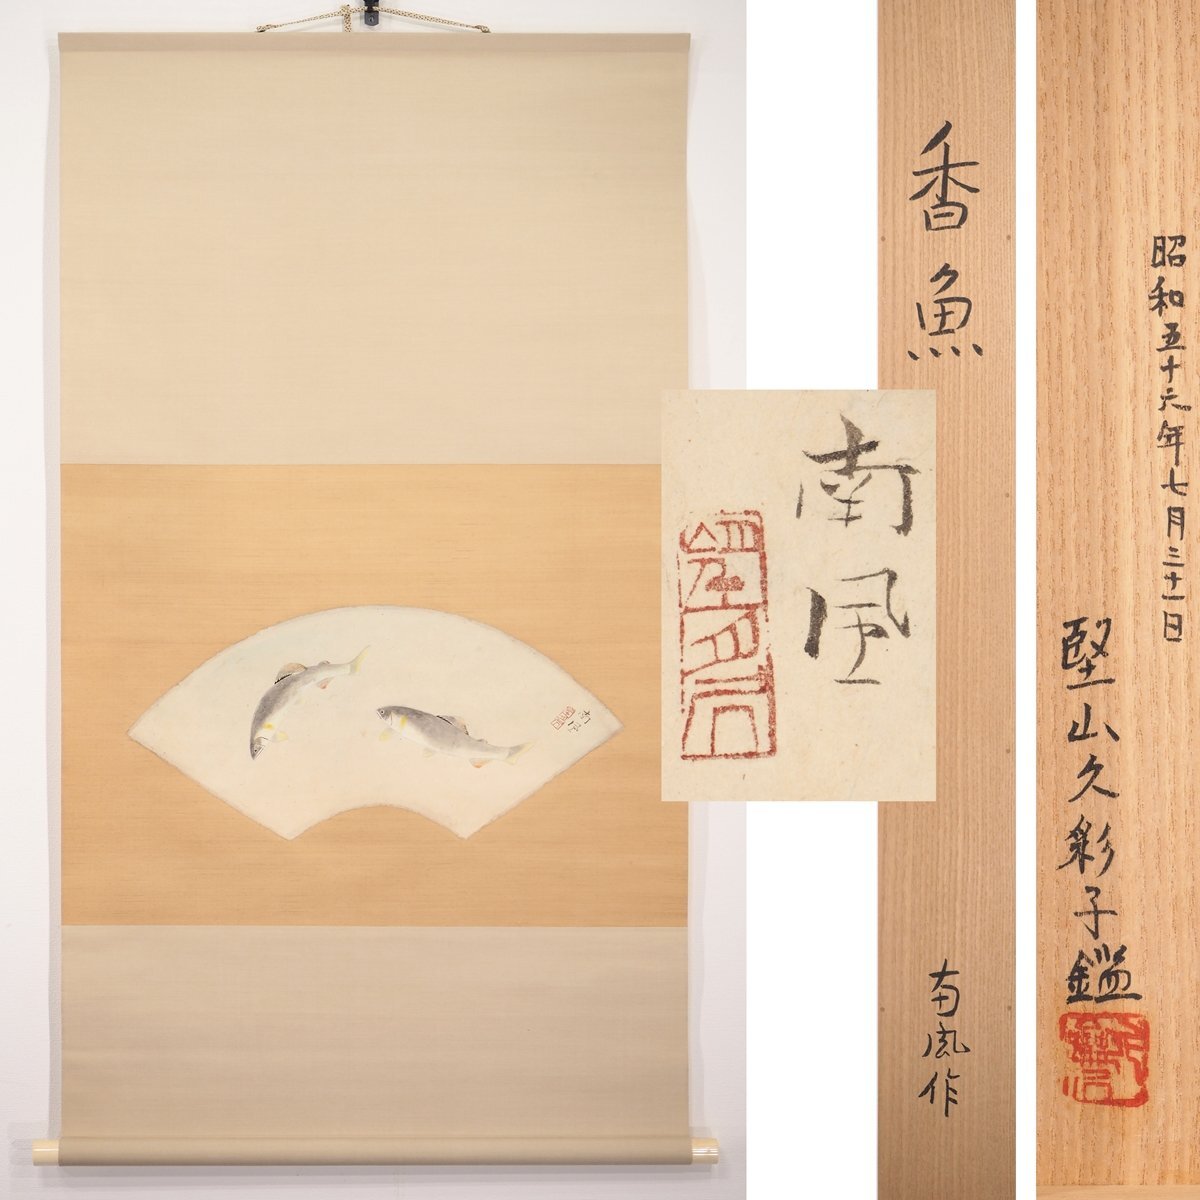 香魚
南風作
南風
昭和五十六年七月三十一日
堅山久彩子鑑